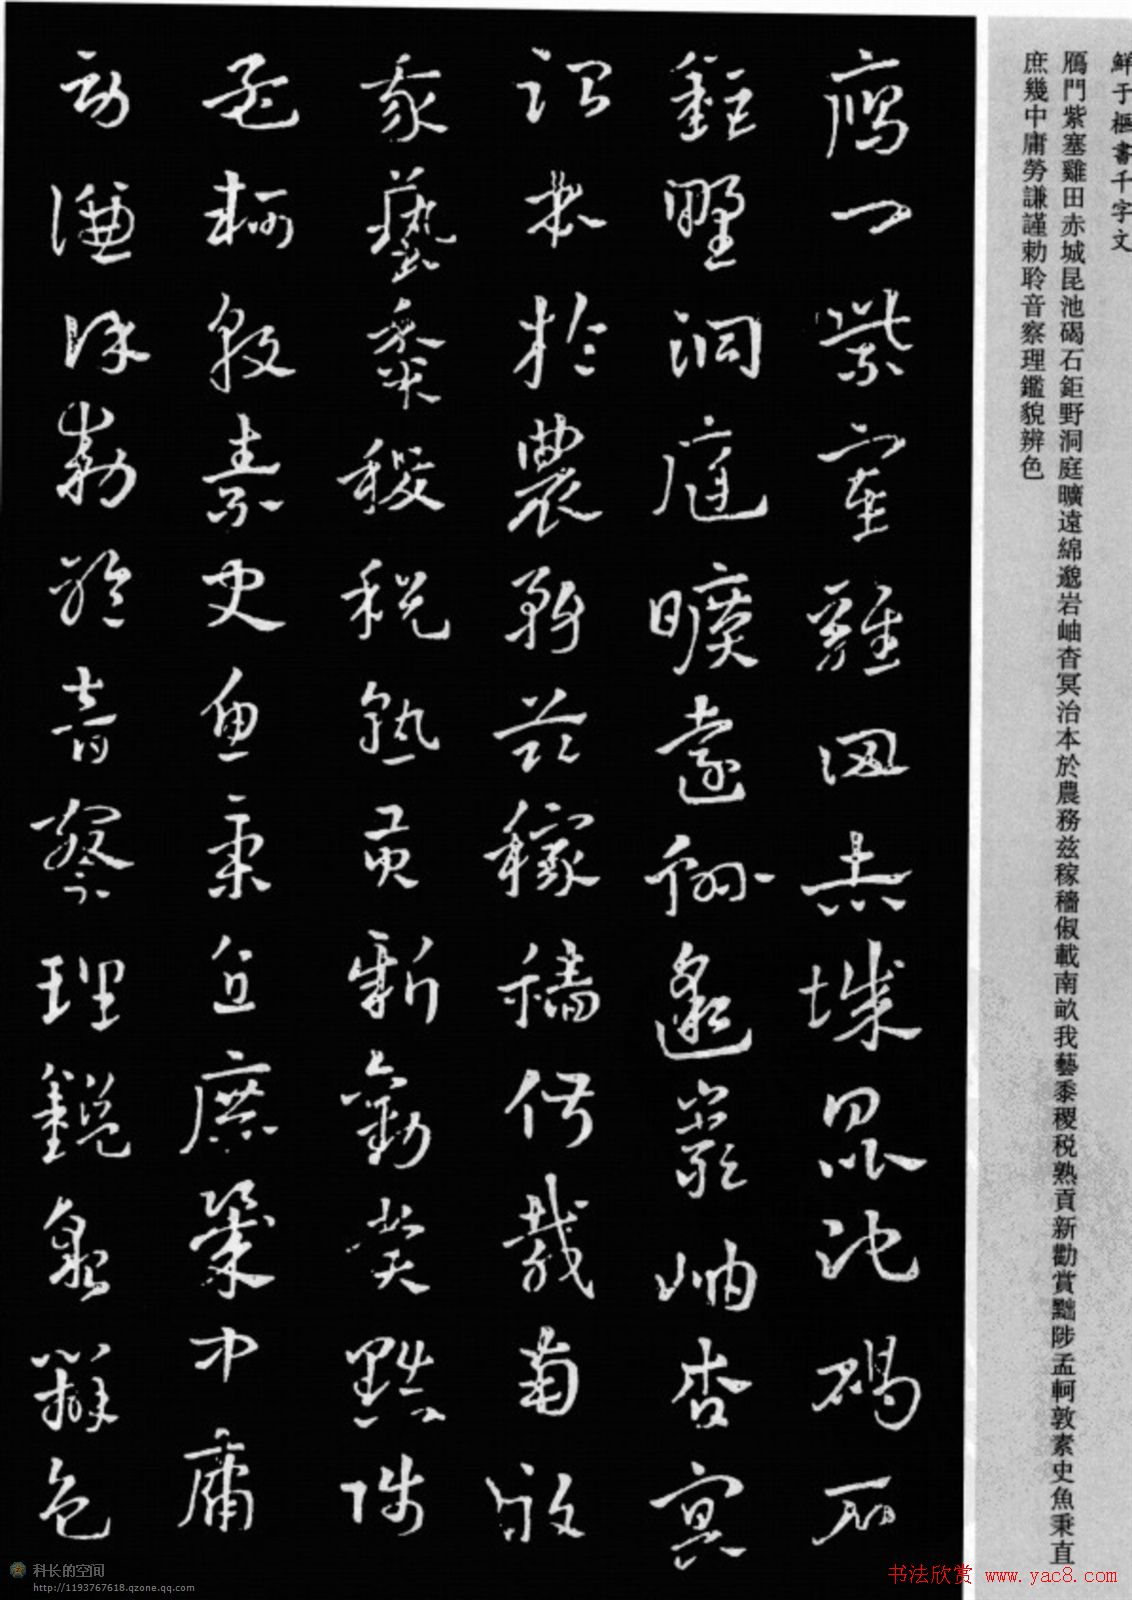 鮮于樞書千字文
鴈門紫塞雞田赤城昆池碣石鉅野洞庭曠遠綿邈岩岫杳冥治本於農務兹稼穡俶載南畝我藝黍稷税熟貢新勸賞黜陟孟軻敦素史魚秉直
庶幾中庸勞謙謹勅聆音察理鑑貌辨色
鴈門紫塞雞田赤城昆池碣石
鉅野洞庭曠遠綿邈巖岫杳冥
治本於農務兹稼穡俶載南畝
我藝黍稷税熟貢新勸賞黜陟
孟軻敦素史魚秉直庶幾中庸
勞謙謹勅聆音察理鑑貌辨色
科长的空间
http://1193767618.qzone.qq.com
书法欣赏 www.yac8.com